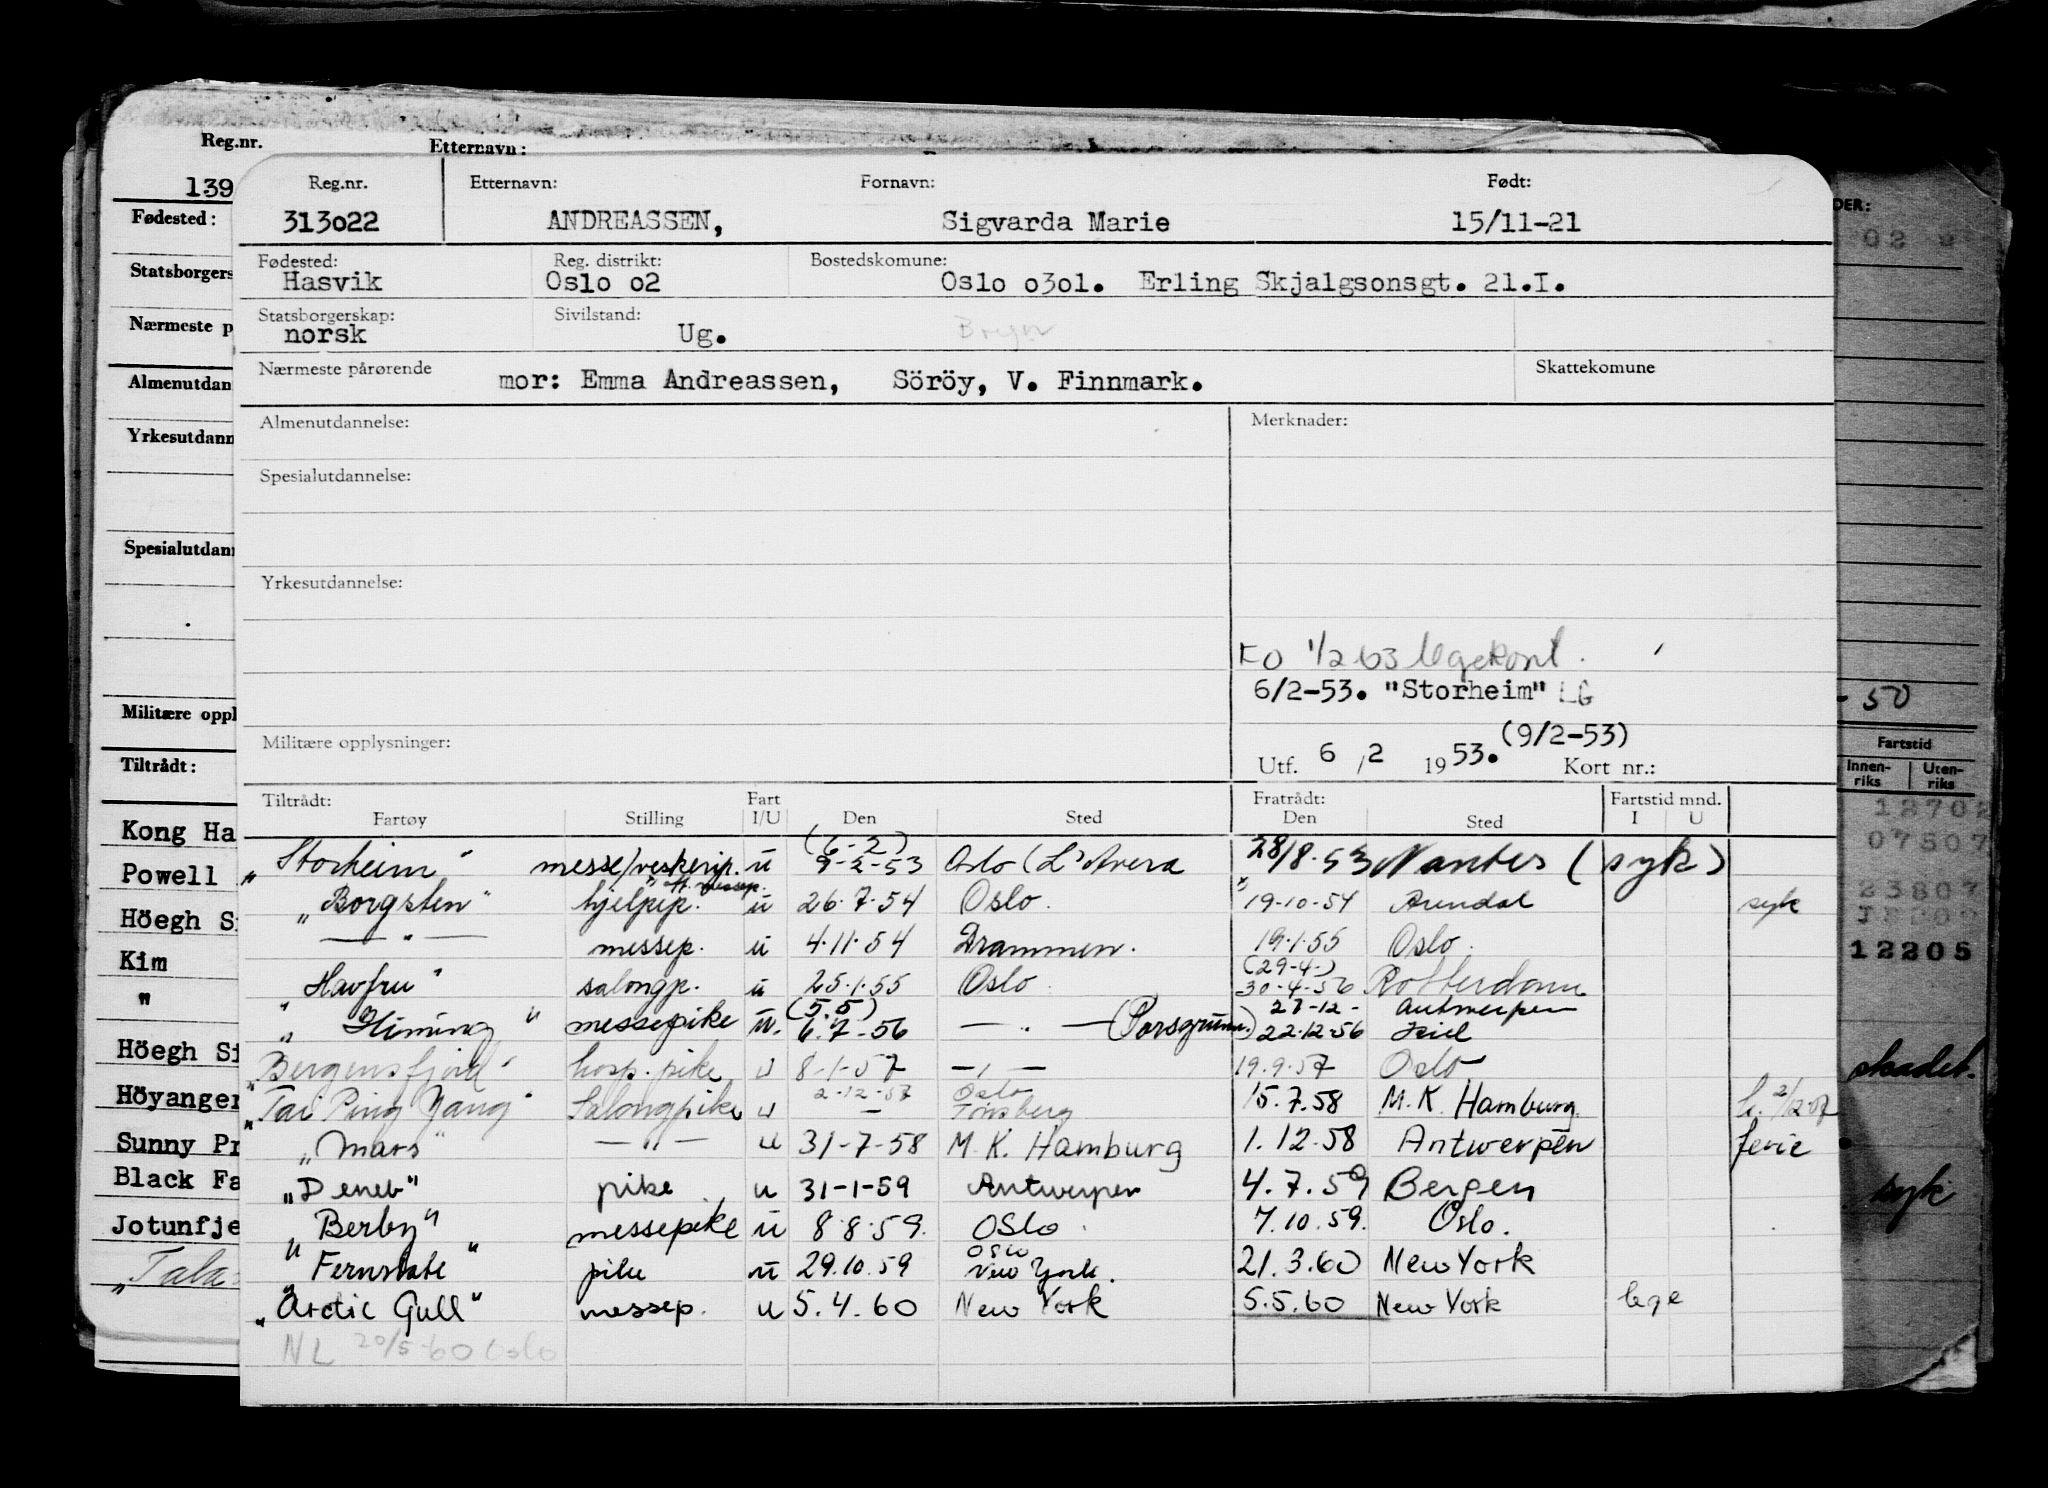 Reg.nr. Etternavn:
139
Fødested:
Statsborgers
Nærmeste p
Almenutdan
Yrkesutdann
Spesialutdann
Militære oppl
Tiltrådt:
Kong Ha
Powell
Höegh Si
Kim
"
Höegh Si
Höyanger
Sunny Pr
Black Fa
Jotunfje
"Tala
Reg.nr. Etternavn: Fornavn: Født:
313o22 ANDREASSEN, Sigvarda Marie 15/11-21
Fødested: Reg. distrikt: Bostedskomune:
Hasvik Oslo o2 Oslo o3o1. Erling Skjalgsonsgt. 21.I.
Statsborgerskap: Sivilstand:
norsk Ug. Bryn
Nærmeste pårørende Skattekomune
mor: Emma Andreassen, Söröy, V. Finnmark.
Almenutdannelse: Merknader:
Spesialutdannelse:
Yrkesutdannelse:
KO 1/2 63 legekont.
6/2-53. "Storheim" LG
(9/2-53)
Militære opplysninger: Utf. 6 / 2 1953. Kort nr.:
Tiltrådt: Fart Fratrådt: Fartstid mnd.
Fartøy Stilling I/U Den Sted Den Sted I U
(6-2)
"Storheim" messe/veskerip. u 9-2-53 Oslo (L'Avera 28/8.53 Nantes (syk)
"Borgsten" hjelpep. u 26.7.54 Oslo. 19-10-54 Arendal syk
— " — messep. u 4.11.54 Drammen. 19.1.55 Oslo.
(29-4-)
"Havfru" salongp. u 25.1.55 Oslo 30-4-56 Rotterdam
(5.5) 27-12- Antwerpen
"Himing" messepike u. 6.7-56 — " — (Porsgrunn.) 22.12.56 Kiel
"Bergensfjord" hosp. pike u 8-1-57 — " — 19.9.57 Oslo
2-12-57 Oslo
"Tai Ping Yang" Salongpike u — Tønsberg 15.7.58 M.K. Hamburg. 2/12.57
"Mars" — " — u 31-7-58 M.K. Hamburg 1.12.58 Antwerpen ferie
"Deneb" pike u 31-1-59 Antwerpen 4.7.59 Bergen
"Berby" messepike u 8.8.59. Oslo 7.10.59. Oslo.
Oslo
"Fernstate" pike u 29.10.59 New York. 21.3.60 New York
"Arctic Gull" messep. u 5.4.60 New York 5.5.60 New York lege
NL 20/5-60 Oslo
DER:
02
- 50
Fartstid
Innenriks Utenriks
12702
07507
23807
12205
skadet.
syk